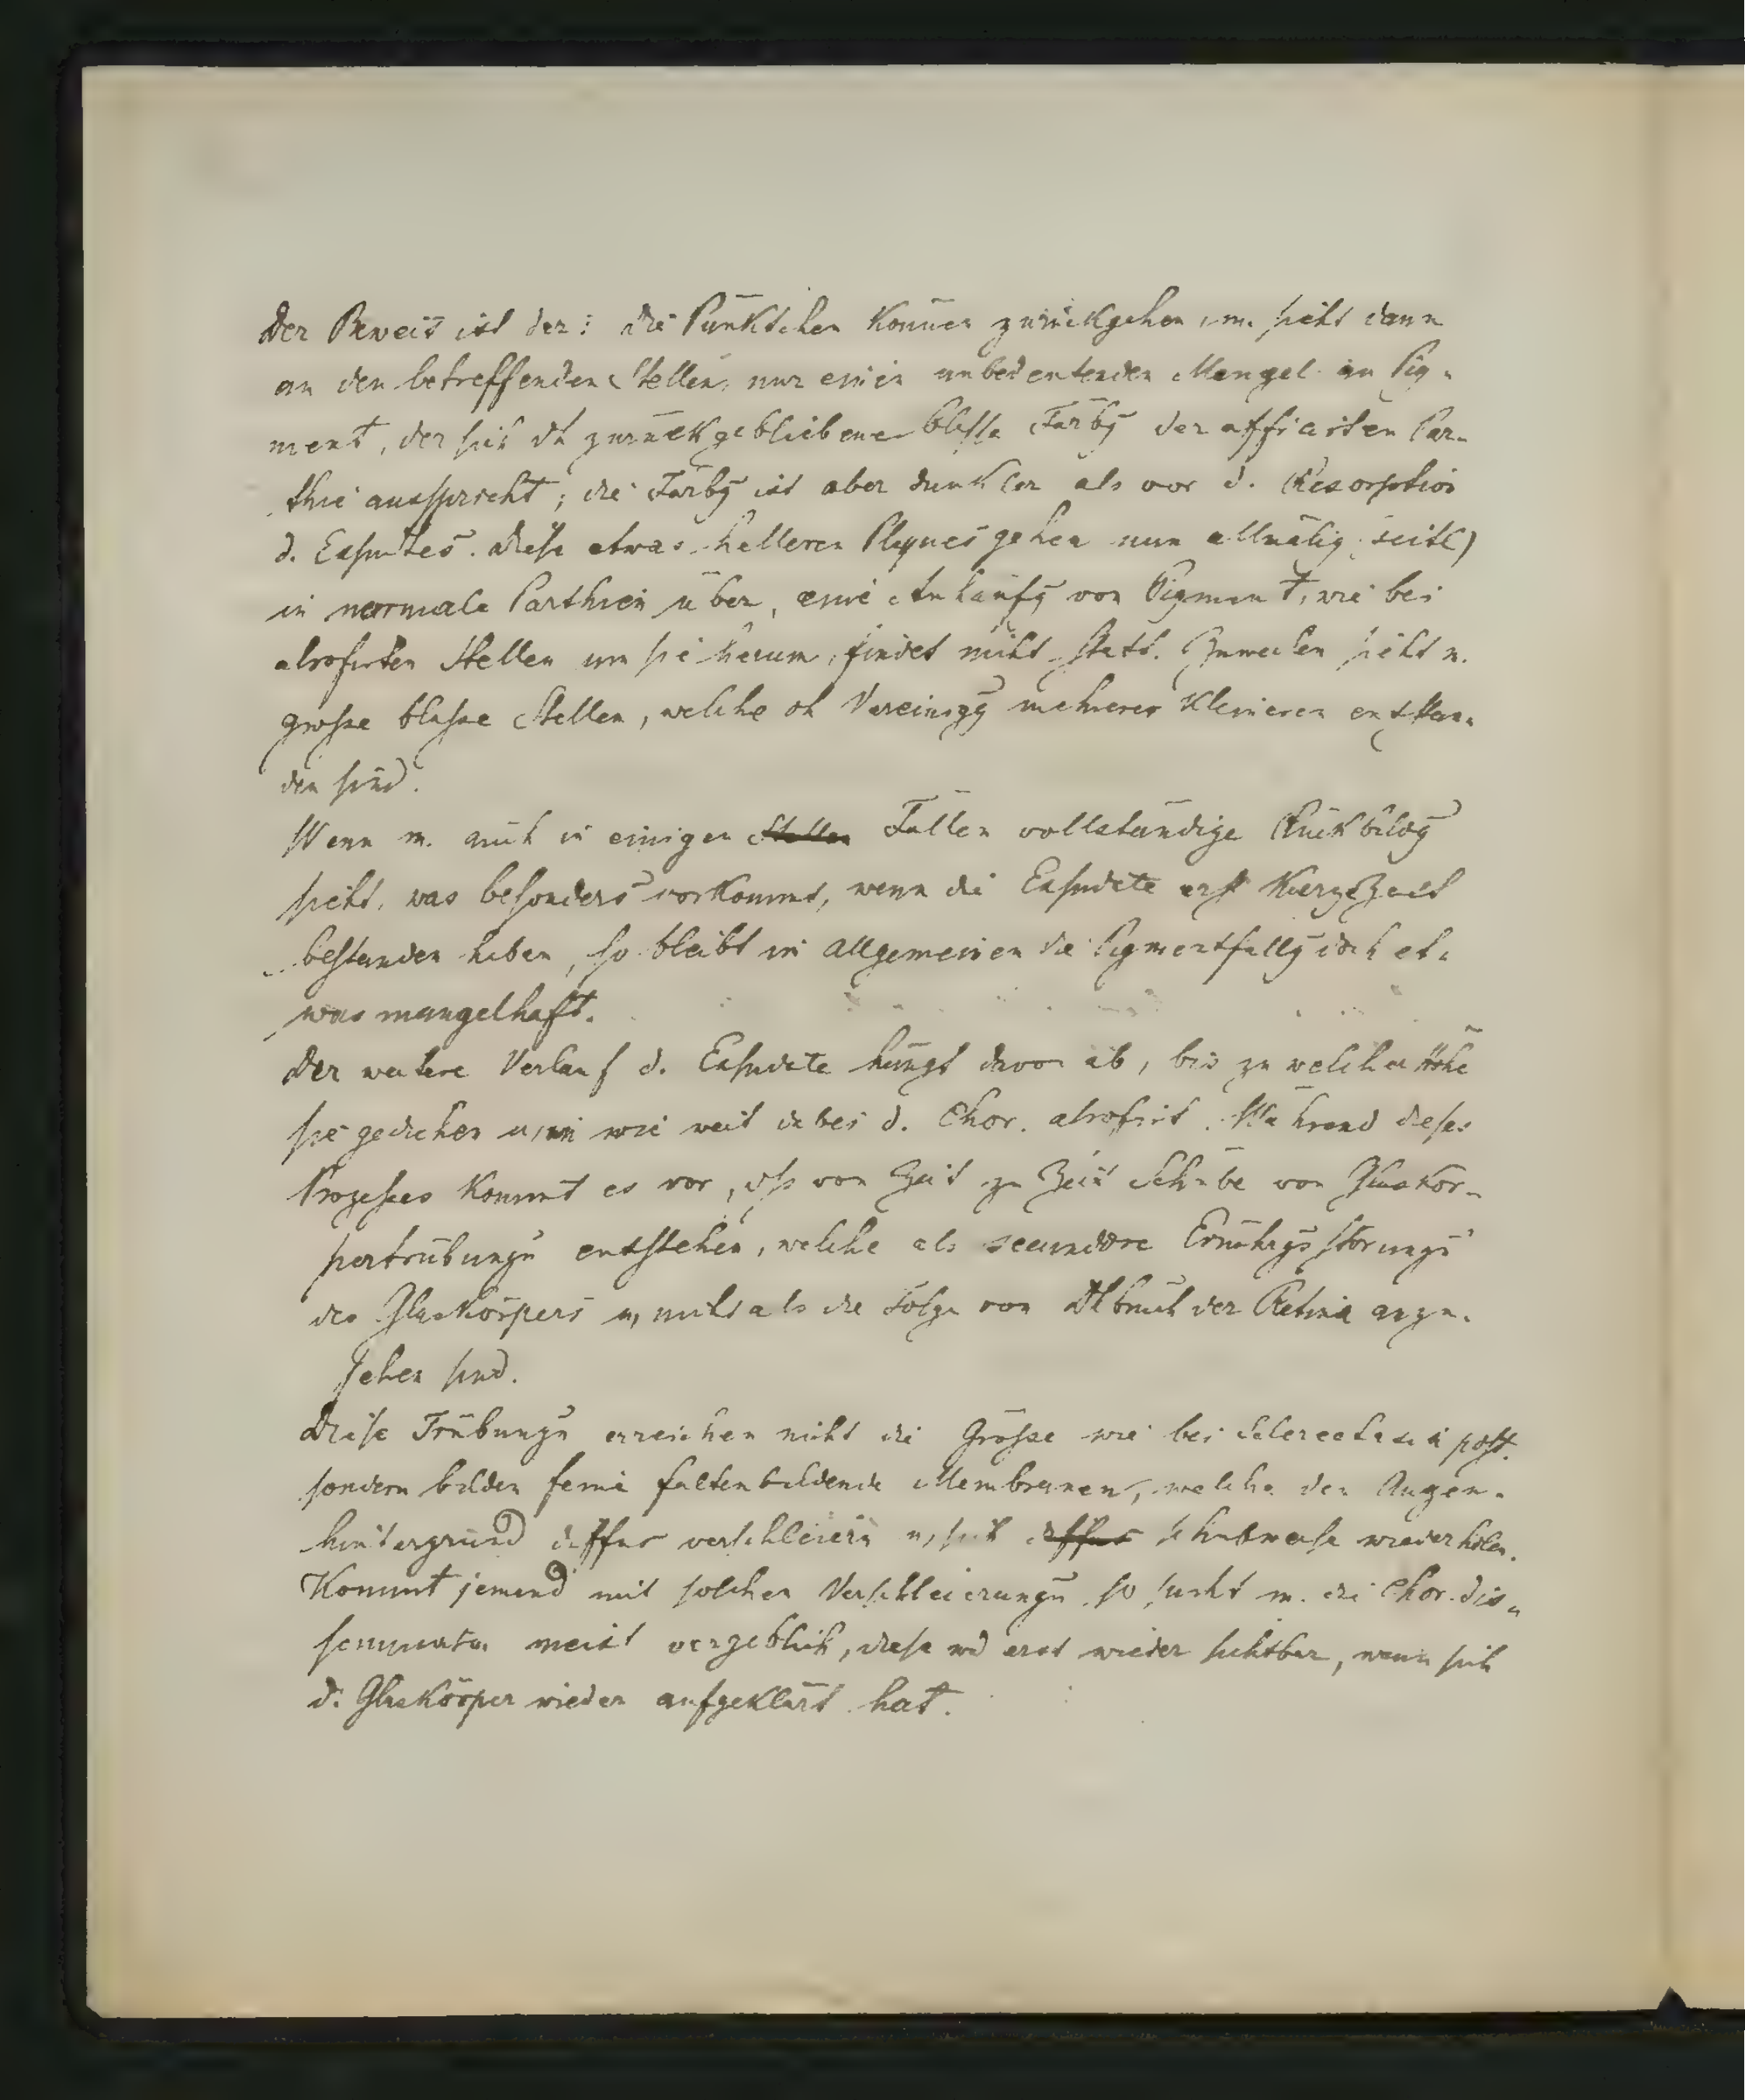 Der Beweis ist der: die Pünktchen können zurückgehen, m. sieht dann
an den betreffenden Stellen nur einen unbedeutenden Mangel an Pig-
ment, der sich dh zurückgebliebene blasse Färbg der afficirten Par-
thie ausspricht; die Färbg ist aber dunkler als vor d. Resorption
d. Exsudates. Diese etwas helleren Plaques gehen nun allmälig seitl)
in normale Parthien über, eine Anhäufg von Pigment, wie bei
atrofirten Stellen um sie herum, findet nicht statt. Zuweilen sieht m.
grosse blasse Stellen, welche dh Vereinigg mehrerer kleineren entstan-
den sind.
Wenn m. auch in einigen Stellen Fällen vollständige Rückbildg
sieht, was besonders vorkommt, wenn die Exsudate erst kurze Zeit
bestanden haben, so bleibt im Allgemeinen die Pigmentfüllg doch et-
was mangelhaft.
Der weitere Verlauf d. Exsudate hängt davon ab, bis zu welcher Höhe
sie gediehen u, wie weit dabei d. Chor. atrofirt. Während dieses
Prozesses kommt es vor, dss von Zeit zu Zeit Schübe von Glaskör-
pertrübungn entstehen, welche als secundäre Ernährgsstörungn
des Glaskörpers u, nicht als die Folge von Dhbruch der Retina anzu-
sehen sind.
Diese Trübungn erreichen nicht die Grösse wie bei Sclerectasia post.
sondern bilden feine faltenbildende Membranen, welche den Augen-
hintergrund diffus verschleiern u, sich diffus schubweise wiederholen.
Kommt jemand mit solchen Verschleierungn so sucht m. die Chor. dis-
seminata meist vergeblich, diese wd erst wieder sichtbar, wenn sich
d. Glaskörper wieder aufgeklärt hat.